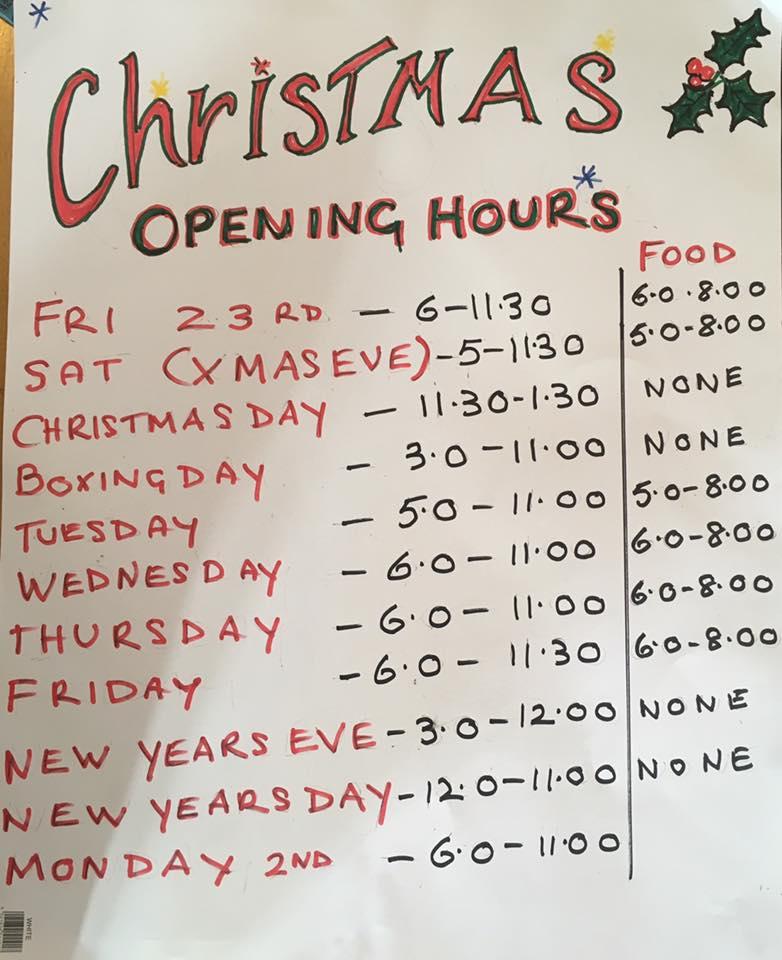 Christmas
OPENING HOURS
FOOD
FRI 23RD - 6-11·30 6·0·8·00
SAT (XMAS EVE) - 5-11·30 5·0-8·00
CHRISTMAS DAY - 11·30-1·30 NONE
BOXING DAY - 3·0-11·00 NONE
TUESDAY - 5·0-11·00 5·0-8·00
WEDNESDAY - 6·0-11·00 6·0-8·00
THURSDAY - 6·0-11·00 6·0-8·00
FRIDAY - 6·0-11·30 6·0-8·00
NEW YEARS EVE - 3·0-12·00 NONE
NEW YEARS DAY - 12·0-11·00 NONE
MONDAY 2ND - 6·0-11·00
WHITE